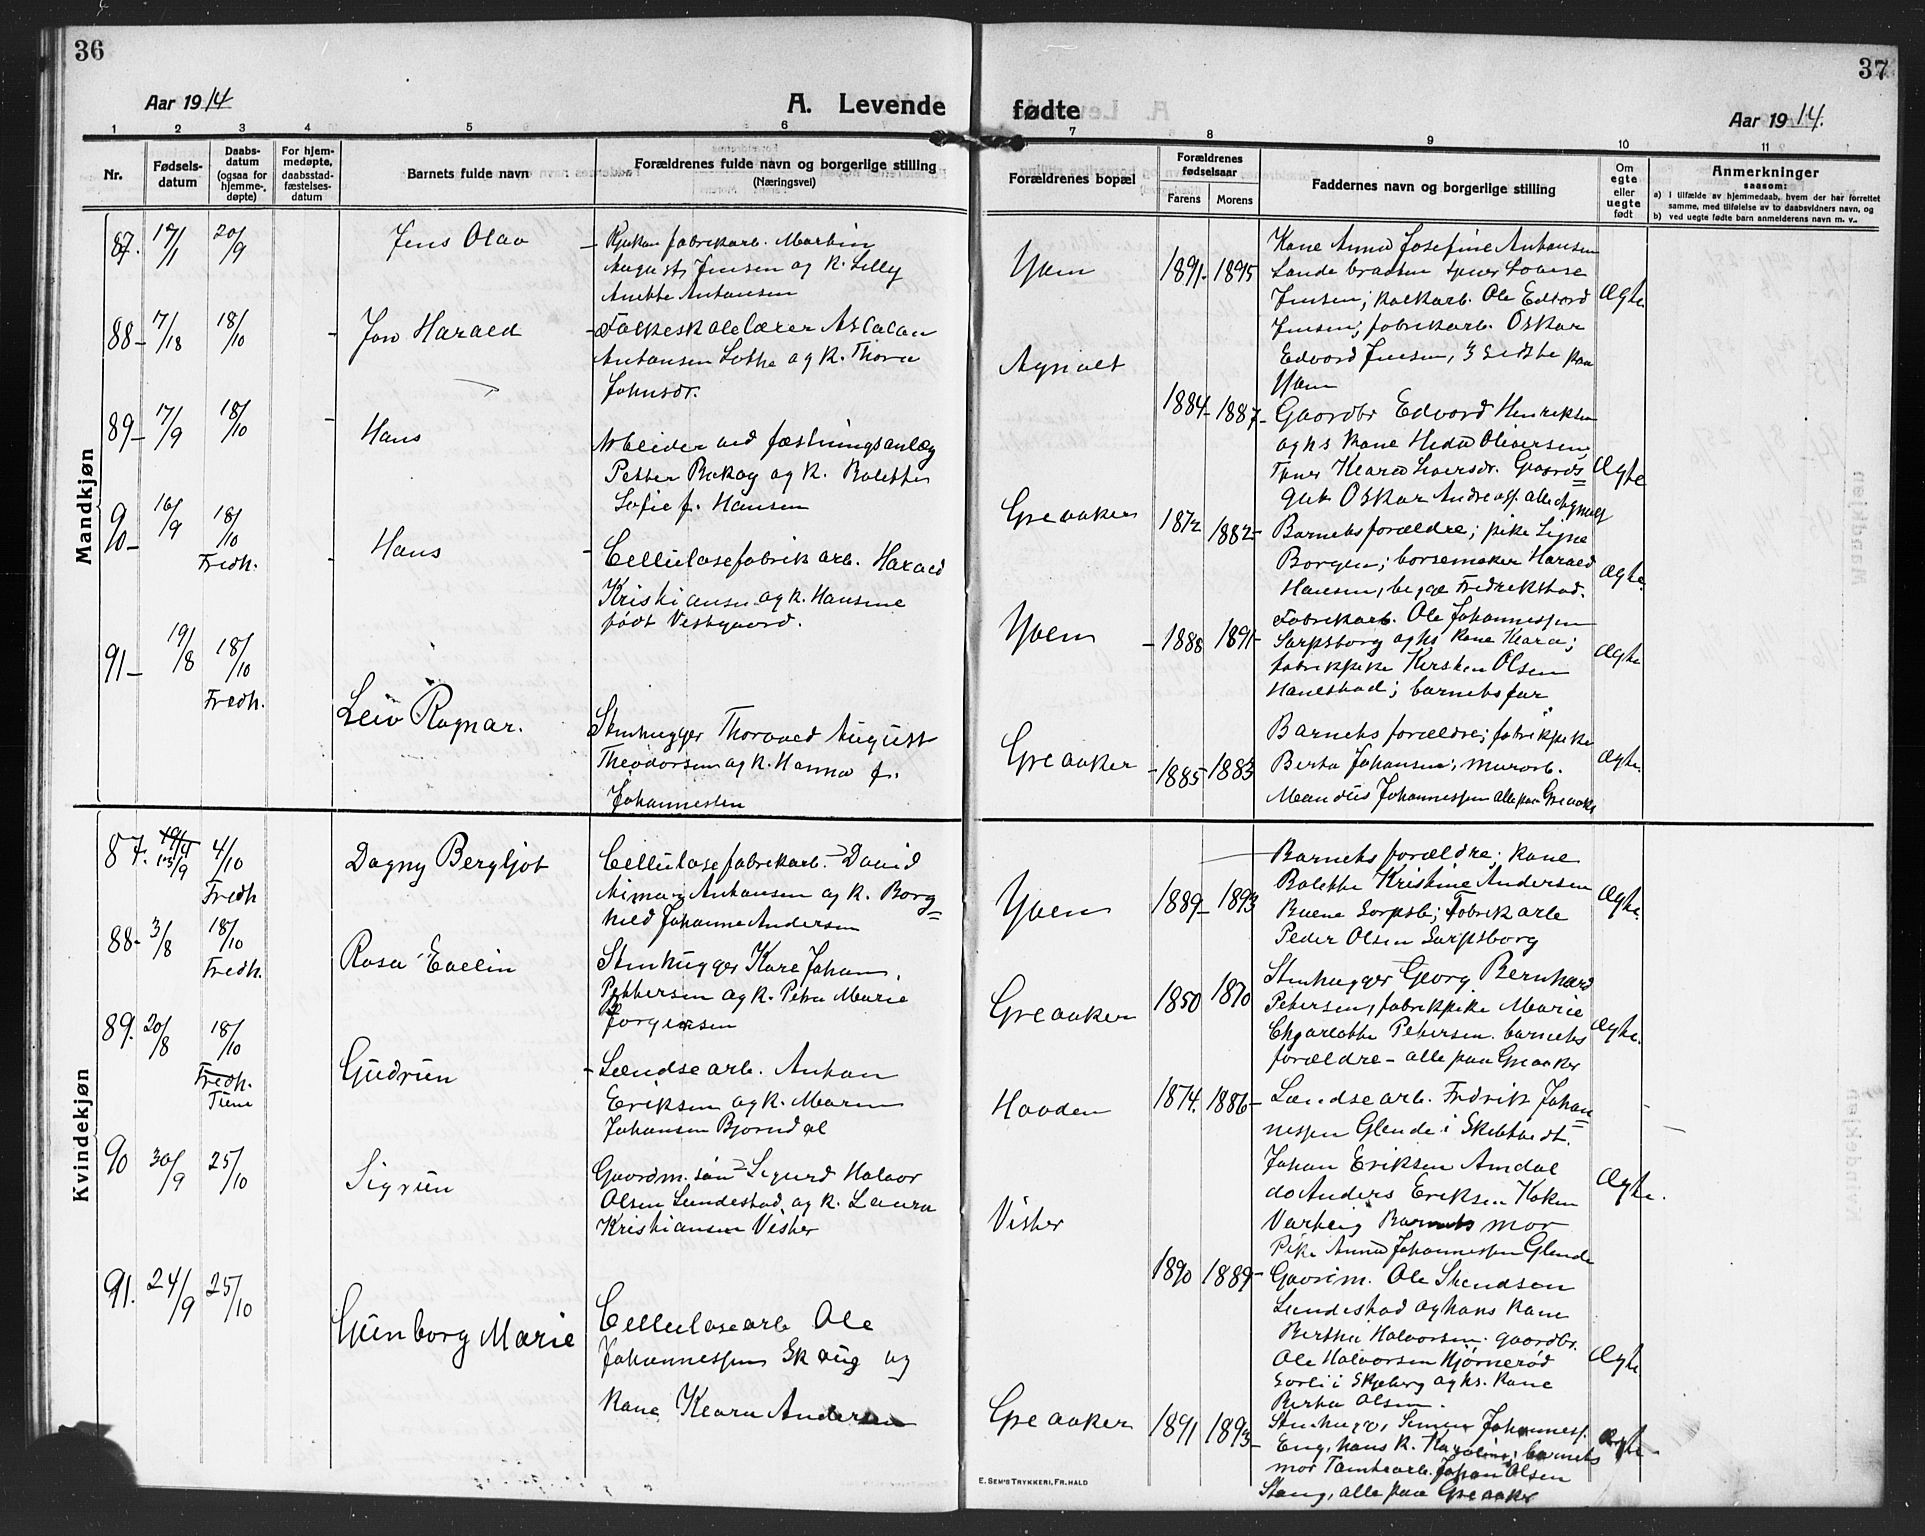 36
Aar 1914
A. Levende
1 2 3 4 5 6
Nr.
Fødsels-
datum
Daabs-
datum
(ogsaa for
hjemme-
døpte)
For hjem-
medøpte,
daabsstad-
fæstelses-
datum
Barnets fulde navn
Forældrenes fulde navn og borgerlige stilling
(Næringsvei)
Mandkjøn
87. 20/9 Jens Olav
fabrikarb. Martin
August Jensen og k. Lilly
Anette Antonsen
88 18/10 Jon Harald
Folkeskolelærer Aslacon
Antonsen Lothe og k. Thora
Johnsdr.
89 17/9 18/10 Hans
Arbeider ved fæstningsanlæg
Petter Bekog og k. Bolette
Sofie f. Hansen
90 16/9 18/10
Fredh.
Hans
Cellulosefabrik arb. Harald
Kristiansen og k. Hansine
født Vestgaard.
91 19/8 18/10
Fredh.
Leiv Ragnar.
Stenhugger Thorvald August
Theodorsen og k. Hanna f.
Johannessen
Kvindekjøn
87. 4/10
Fredh
Dagny Bergljot
Cellulosefabrikarb. David
Antonsen og k. Borg=
hild Johanne Andersen
88 3/8 18/10
Fredh.
Rosa Evelin
Stenhugger Kare Johan
Pettersen og k. Petra Marie
Jørgensen
89. 20/8 18/10
Fredh.
Tune
Gudrun
Lændsearb. Anton
Eriksen og k. Maren
Johansen Bjørndal
90 30/9 25/10 Sigrun
Gaardm. søn Sigurd Halvor
Olsen Lundestad og k. Laura
Kristiansen Vister
91. 24/9 25/10 Gunborg Marie
Cellulosearb Ole
Johannessen Skaug og
kone Klara Andersen
37
fødte
Aar 1914.
7 8 9 10 11
Forældrenes bopæl
Forældrenes
fødselsaar
Farens Morens
Faddernes navn og borgerlige stilling
Om
egte
eller
uegte
født
Anmerkninger
saasom:
a) I tilfælde av hjemmedaab, hvem der har forrettet
samme, med tilføielse av to daabsvidners navn, og
b) ved uegte fødte barn anmelderens navn m. v.
Yven 1891 1895
Kone Anna Josefine Antonsen
Jensen; kalkarb. Ole Edvard
Jensen; fabrikarb. Oskar
Edvard Jensen, 3 sidste paa
Yven
Ægte
Agnalt 1884 1887
Gaardbr Edvard Henriksen
og hs kone Hilda Oliversen
Gaards=
gut Oskar Andreass. alle Agnalt
Ægte
Greaaker 1872 1882
Barnets forældre; pike Signe
Borgen; børsemaker Harald
Hansen, begge Fredrikstad.
Ægte
Yven 1888 1891
Fabrikarb. Ole Johannessen
Sarpsborg og hs kone Klara;
fabrikpike Kirsten Olsen
Hanestad; barnets far.
Ægte
Greaaker 1885 1883
Barnets forældre; fabrikpike
Berta Johansen; murarb.
Mandius Johannessen alle paa Greaaker
Ægte.
Yven 1889 1893
Barnets forældre; kone
Bolette Kristine Andersen
Buene Sarpsb; Fabrikarb
Peder Olsen Sarpsborg
Ægte.
Greaaker 1850 1870
Stenhugger Georg Bernhard
Petersen, fabrikpike Marie
Charlotte Petersen. barnets
forældre - alle paa Greaaker
Ægte.
Haaden 1874. 1886
Lændsearb. Fredrik Johan=
nessen Glende i Skibtvedt.
Johan Eriksen Amdal
do Anders Eriksen
Varteig Barnets mor
Pike Anna Johannessen Glende
Ægte.
Vister 1890 1889
Gaardm. Ole Svendsen
Lundestad og hans kone
Bertha Halvorsen. gaardbr.
Ole Halvorsen Kjørnerød
Sorli i Skjeberg og hs. kone
Berta Olsen.
Ægte
Greaaker 1891 1893
Stenhugg. Simen Johanness.
Eng, hans k. Karoline; barnets
mor Tomtearb. Johan Olsen
Stang, alle paa Greaaker
Ægte
E. SEM'S TRYKKERI, FR.HALD